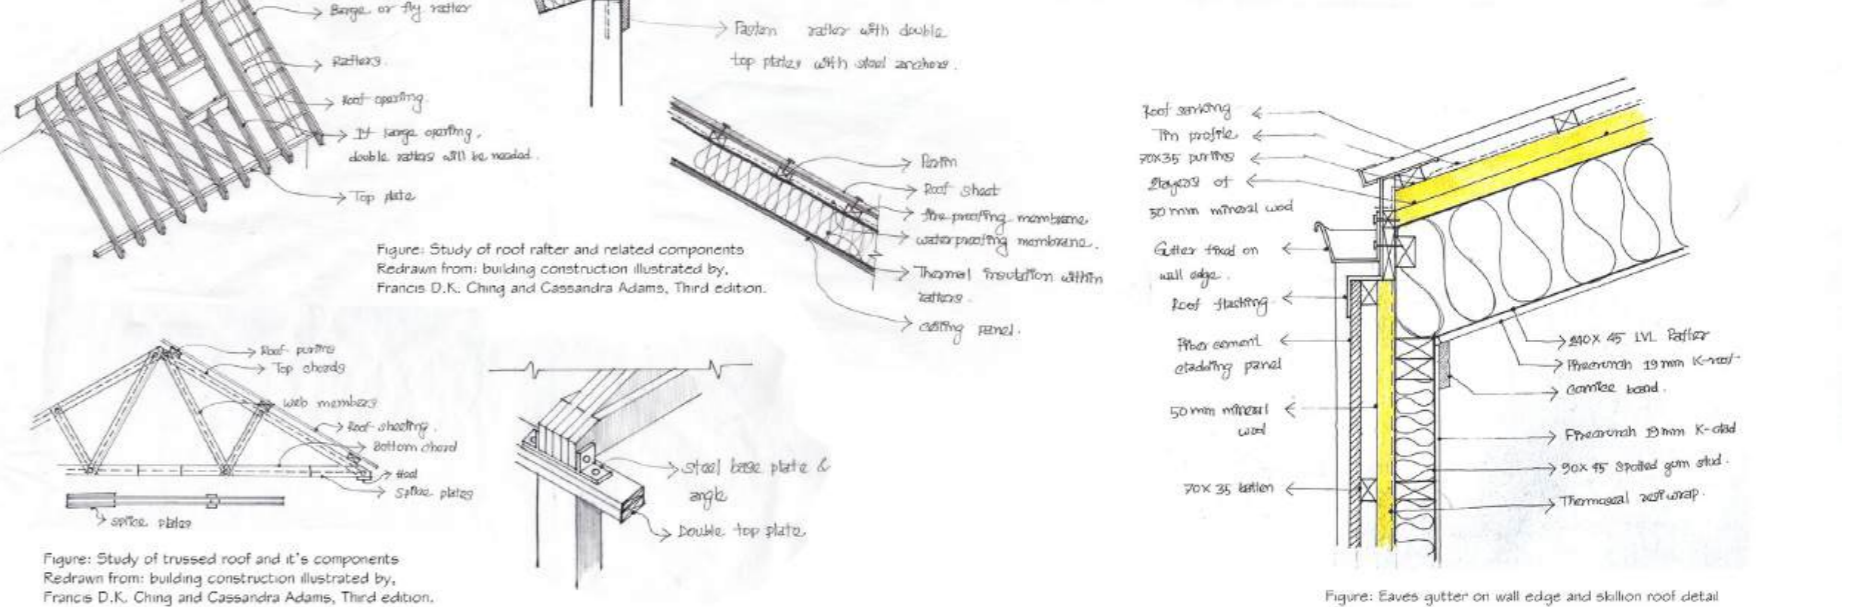 Barge or fly rafter
Rafters.
Roof opening.
If large opening,
double rafters will be needed.
Top plate
Fasten rafter with double
top plates with steel anchors.
Purlin
Roof sheet
fire proofing membrane
waterproofing membrane.
Thermal insulation within
rafters.
ceiling panel.
Figure: Study of roof rafter and related components
Redrawn from: building construction illustrated by,
Francis D.K. Ching and Cassandra Adams, Third edition.
Roof purlins
Top chords
Web members
Roof sheeting.
Bottom chord
Heel
Splice plates
splice plates
Figure: Study of trussed roof and it's components
Redrawn from: building construction illustrated by,
Francis D.K. Ching and Cassandra Adams, Third edition.
steel base plate &
angle
Double top plate
Roof sarking
Tin profile
70X35 purlins
2 layers of
50 mm mineral wool
Gutter fixed on
wall edge.
Roof flashing
Fiber cement
cladding panel
50 mm mineral
wool
70X35 batten
240X 45 LVL Rafter
19 mm K-roof
Cornice band.
19 mm K-clad
90X 45 Spotted gum stud.
Thermoseal wrap.
Figure: Eaves gutter on wall edge and skillion roof detail